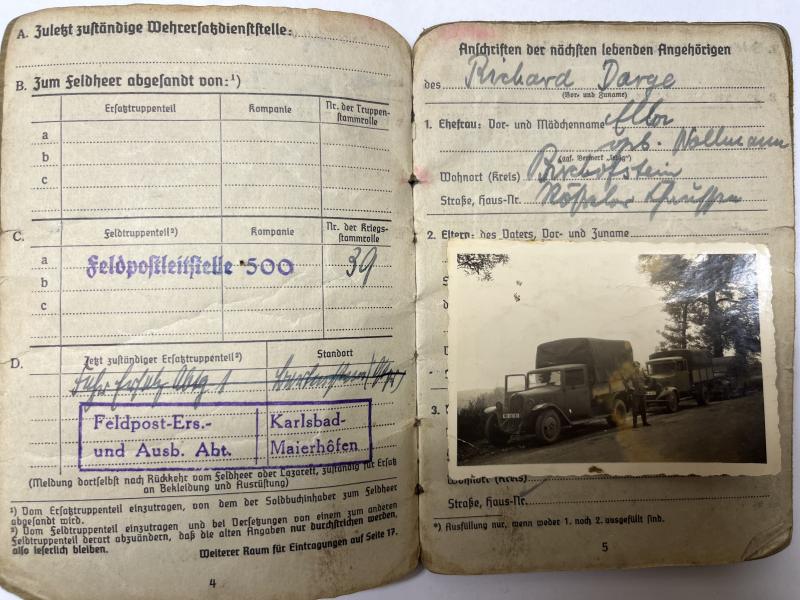 A. Zuletzt zuständige Wehrersatzdienststelle:
B. Zum Feldheer abgesandt von:¹)
Ersatztruppenteil Kompanie Nr. der Truppen-
stammrolle
a
b
c
C. Feldtruppenteil²) Kompanie Nr. der Kriegs-
stammrolle
a Feldpostleitstelle 500 39
b
c
D. Jetzt zuständiger Ersatztruppenteil²) Standort
Fahr Ersatz Abtg 1
Feldpost-Ers.- Karlsbad-
und Ausb. Abt. Maierhöfen
(Meldung dortselbst nach Rückkehr vom Feldheer oder Lazarett, zuständig für Ersatz
an Bekleidung und Ausrüstung)
¹) Vom Ersatztruppenteil einzutragen, von dem der Soldbuchinhaber zum Feldheer
abgesandt wird.
²) Vom Feldtruppenteil einzutragen und bei Versetzungen von einem zum anderen
Feldtruppenteil derart abzuändern, daß die alten Angaben nur durchstrichen werden,
also leserlich bleiben.
Weiterer Raum für Eintragungen auf Seite 17.
4
Anschriften der nächsten lebenden Angehörigen
des Richard Darge
(Vor- und Zuname)
1. Ehefrau: Vor- und Mädchenname
geb. Nallmann
(ggf. Vermerk „ledig“)
Wohnort (Kreis) Bischofstein
Straße, Haus-Nr.
2. Eltern: des Vaters, Vor- und Zuname
3.
Wohnort (Kreis)
Straße, Haus-Nr.
*) Ausfüllung nur, wenn weder 1. noch 2. ausgefüllt sind.
5